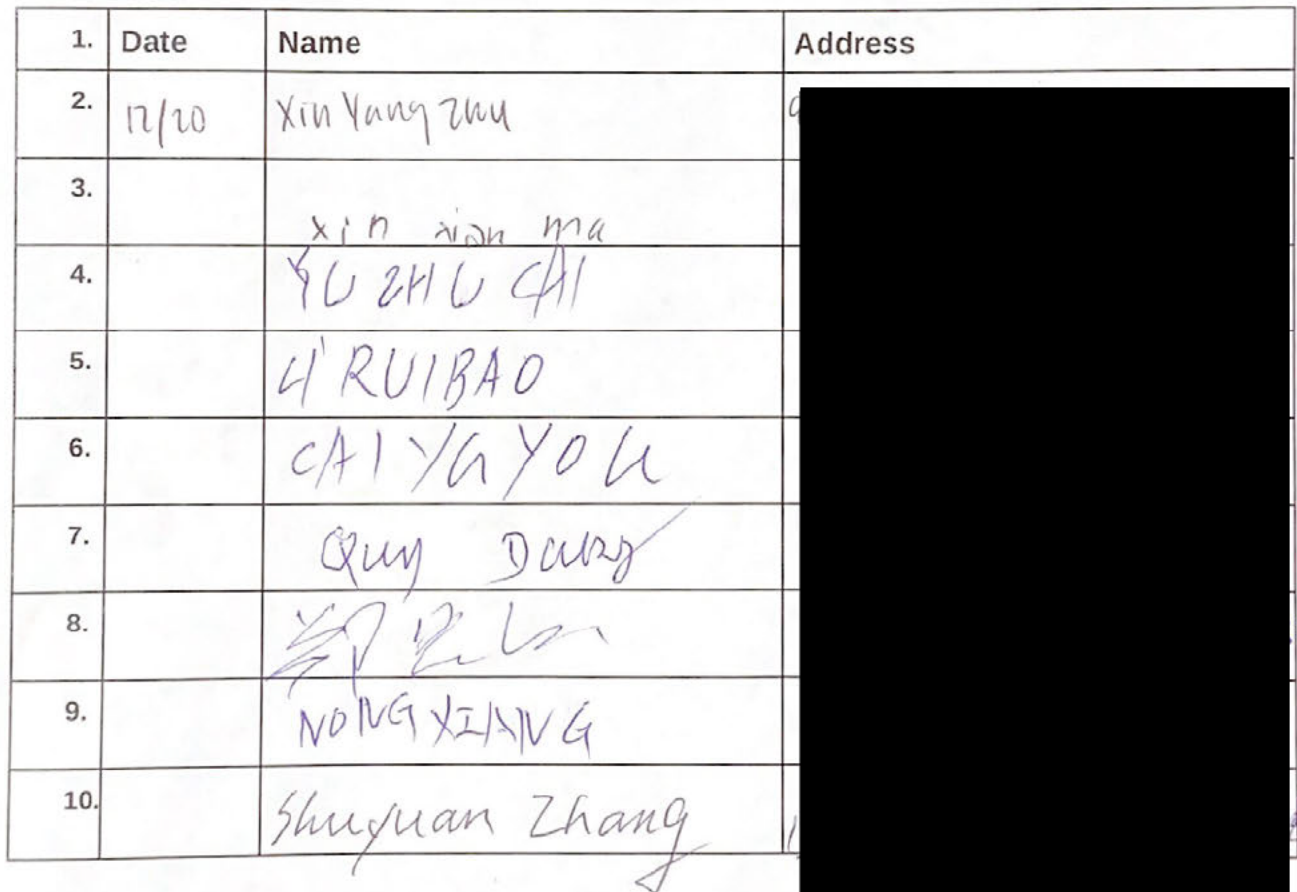 1. Date Name Address
2. 12/20 Xin Yang Zhu
3. xin xian ma
4. YU ZHU CAI
5. LI RUIBAO
6. CAI YG YOU
7.
8. 郑
9. NONG XIANG
10. Shuyuan Zhang